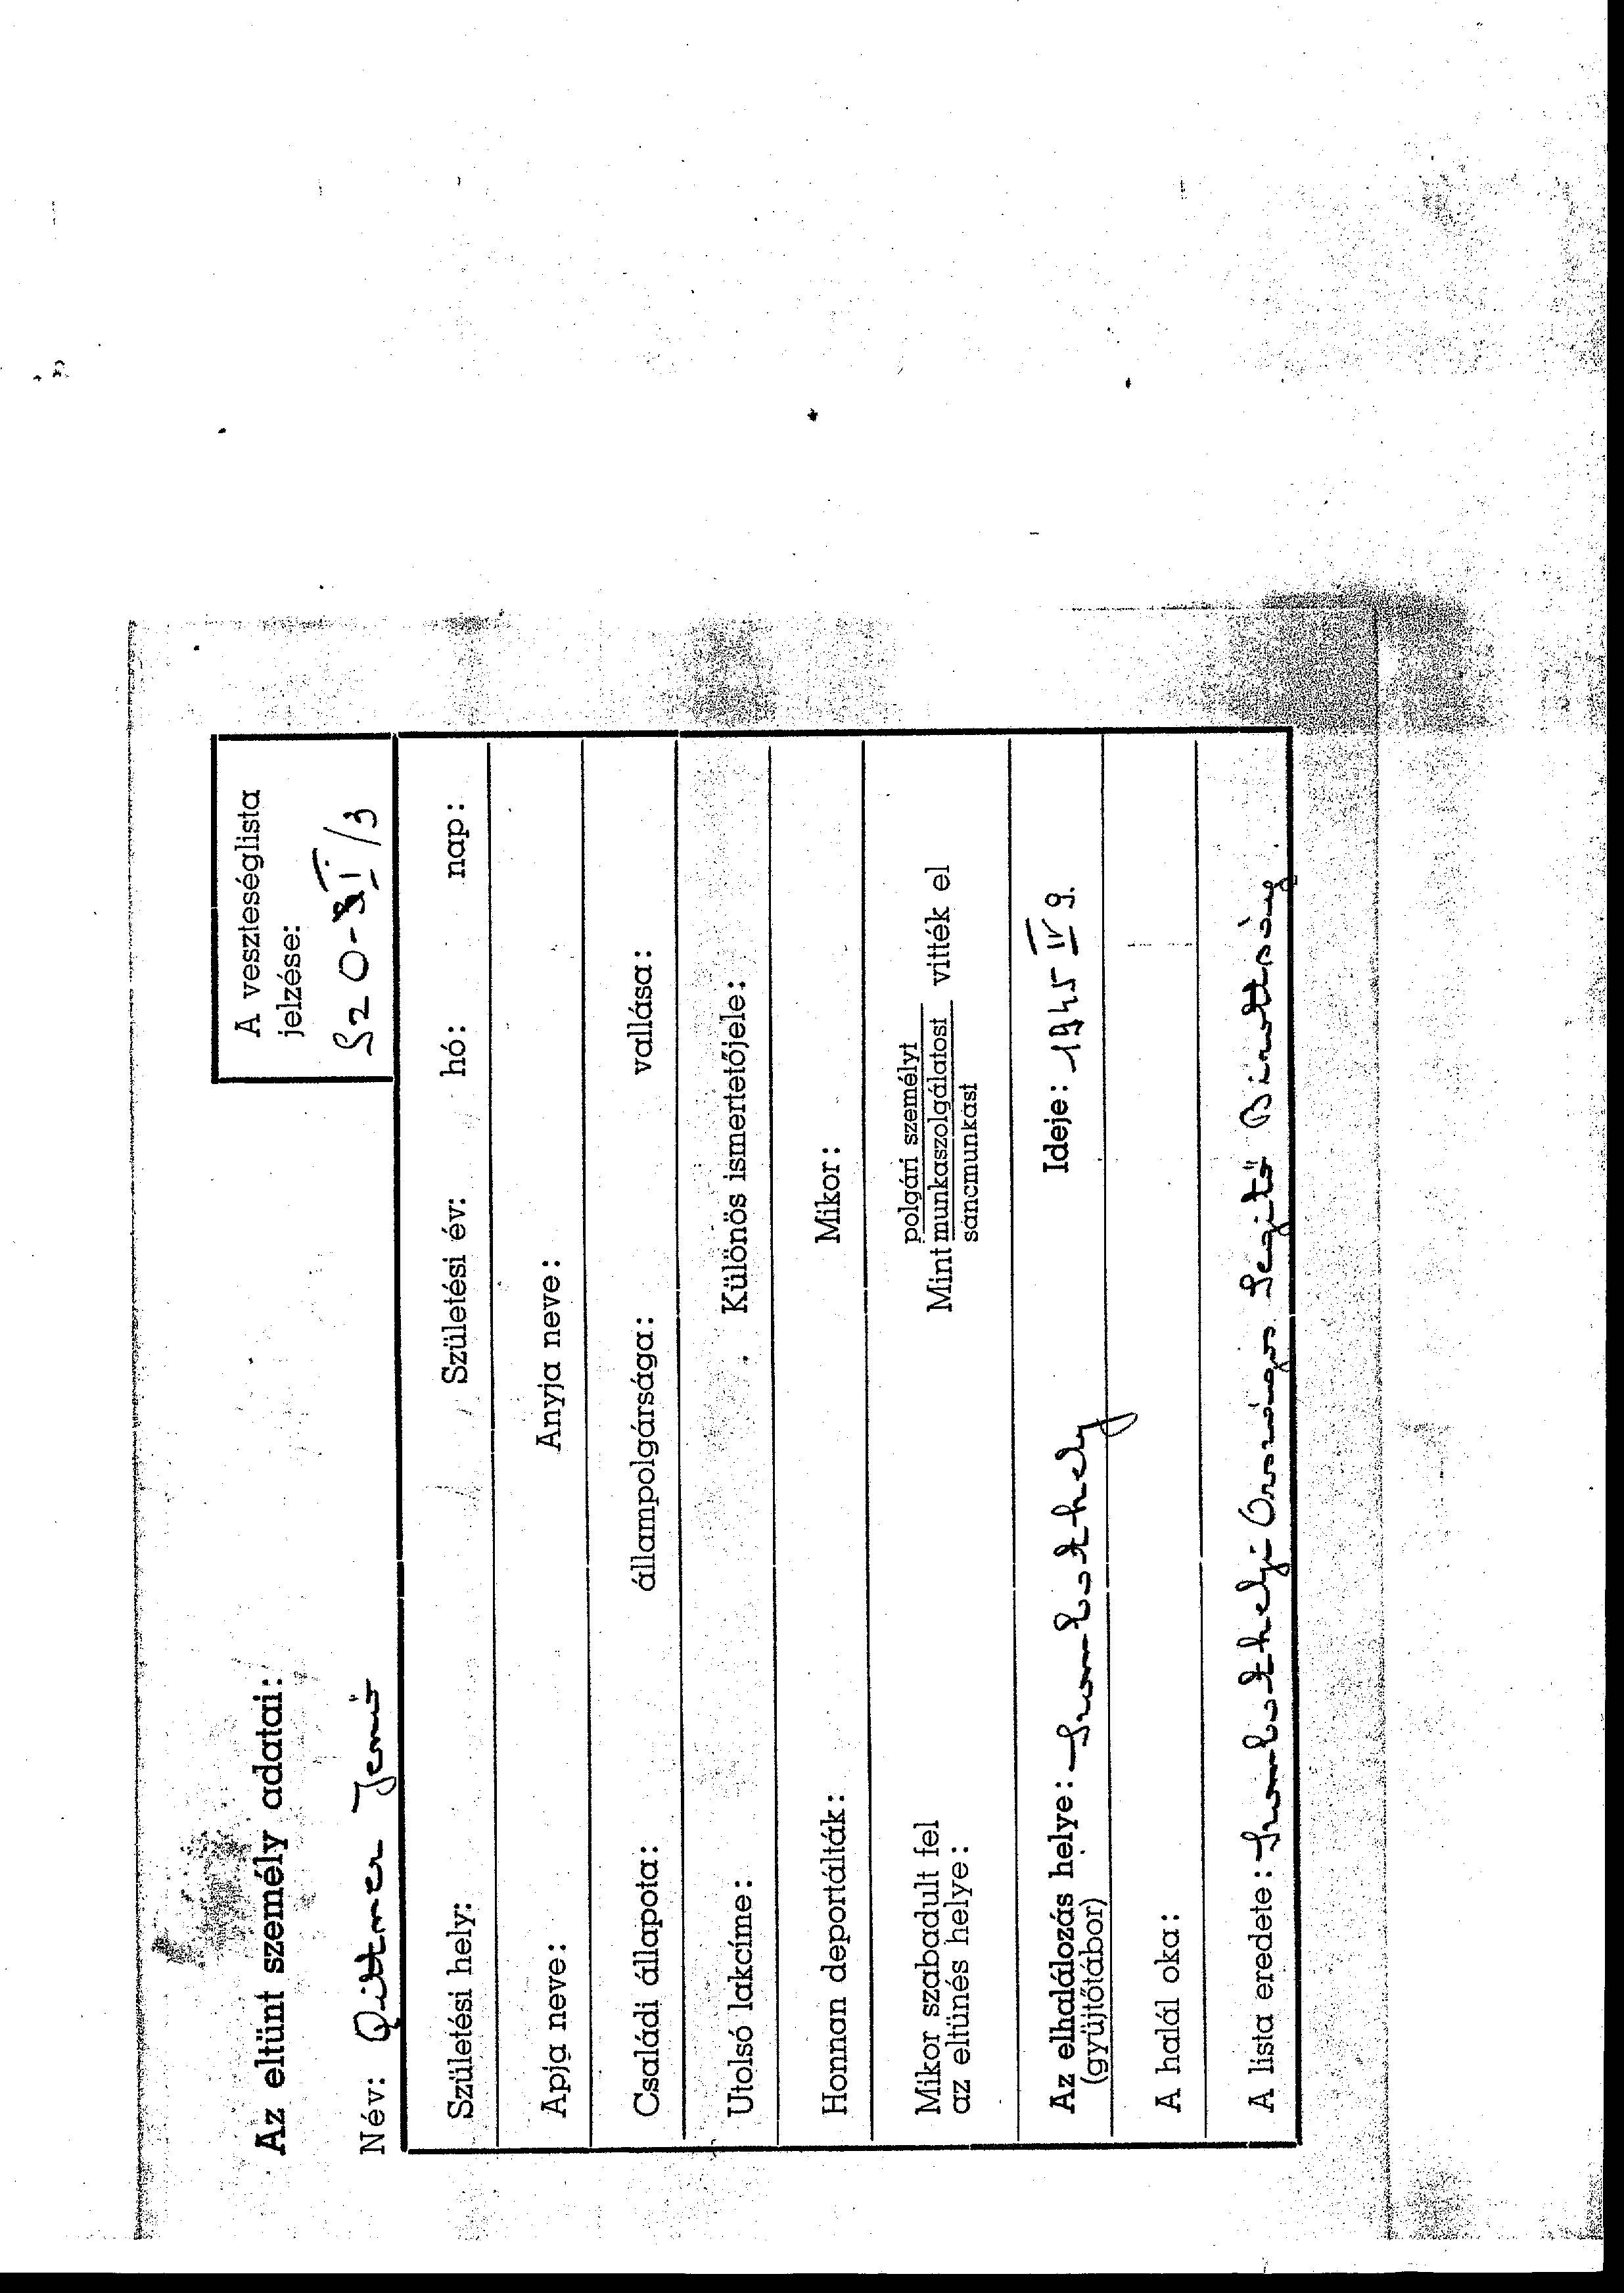 A veszteséglista
jelzése:
S20-XI/3
Az eltünt személy adatai:
Név: Qittner Jenő
Születési hely: Születési év: hó: nap:
Apja neve: Anyja neve:
Családi állapota: állampolgársága: vallása:
Utolsó lakcíme: Különös ismertetőjele:
Honnan deportálták: Mikor:
Mikor szabadult fel
az eltünés helye:
polgári személyt
Mint munkaszolgálatost vitték el
sáncmunkást
Az elhalálozás helye: Szombathely Ideje: 1945 IV 9.
(gyüjtőtábor)
A halál oka:
A lista eredete: Szombathelyi Országos Segitő Bizottság.